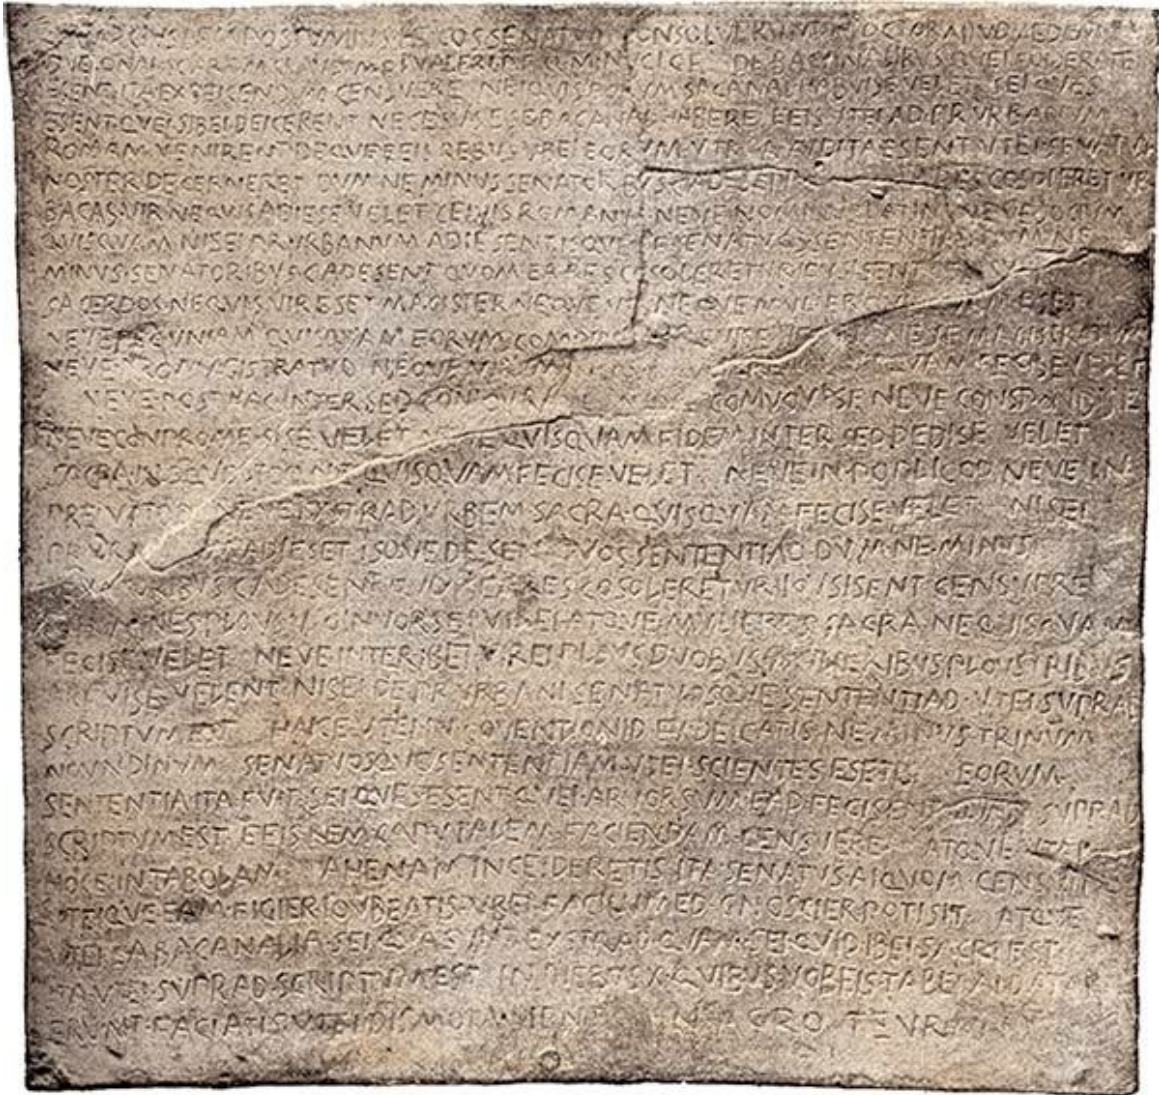 COS SENATVM CONSOLVERVNT N OCTOB APVD AEDEM
VALERI P F Q MINVCI C F DE BACANALIBVS QVEI FOIDERATEI
ESENT ITA EXDEICENDVM CENSVERE NEIQVIS EORVM BACANAL HABVISE VELET SEI QVES
ESENT QVEI SIBEI DEICERENT NECESVS ESE BACANAL HABERE EEIS VTEI AD PR VRBANVM
ROMAM VENIRENT DEQVE EEIS REBVS VBEI EORVM VTR A AVDITA ESENT VTEI SENATVS
NOSTER DECERNERET DVM NE MINVS SENATORBVS C ADESENT RES COSOLERETVR
BACAS VIR NEQVIS ADIESE VELET CEIVIS ROMANVS NEVE NOMINVS LATINI NEVE SOCIVM
QVISQVAM NISEI PR VRBANVM ADIESENT ISQVE DE SENATVOS SENTENTIAD DVM NE
MINVS SENATORIBVS C ADESENT QVOM EA RES COSOLERETVR IOVSISENT
SACERDOS NEQVIS VIR ESET MAGISTER NEQVE VIR NEQVE MVLIER QVISQVAM ESET
NEVE PECVNIAM QVISQVAM EORVM COMOINEM MAGISTRATVM
NEVE PRO MAGISTRATVD NEQVE VIRVM QVIQVAM FECISE VELET
NEVE POST HAC INTER SED CONIOVRASE NEVE COMVOVISE NEVE CONSPONDISE
NEVE CONPROMESISE VELET NEVE QVISQVAM FIDEM INTER SED DEDISE VELET
SACRA IN OQVOLTOD NE QVISQVAM FECISE VELET NEVE IN POPLICOD NEVE IN
PREIVATOD NEVE EXSTRAD VRBEM SACRA QVISQVAM FECISE VELET NISEI
PR VRBANVM ADIESET ISQVE DE SENATVOS SENTENTIAD DVM NE MINVS
SENATORIBVS C ADESENT QVOM EA RES COSOLERETVR IOVSISENT CENSVERE
HOMINES PLOVS V OINVORSEI VIREI ATQVE MVLIERES SACRA NE QVISQVAM
FECISE VELET NEVE INTER IBEI VIREI PLOVS DVOBVS MVLIERIBVS PLOVS TRIBVS
ARFVISE VELENT NISEI DE PR VRBANI SENATVOSQVE SENTENTIAD VTEI SVPRAD
SCRIPTVM EST HAICE VTEI IN COVENTIONID EXDEICATIS NE MINVS TRINVM
NOVNDINVM SENATVOSQVE SENTENTIAM VTEI SCIENTES ESETIS EORVM
SENTENTIA ITA FVIT SEI QVES ESENT QVEI ARVORSVM EAD FECISENT QVAM SVPRAD
SCRIPTVM EST EEIS REM CAPVTALEM FACIENDAM CENSVERE ATQVE VTEI
HOCE IN TABOLAM AHENAM INCEIDERETIS ITA SENATVS AIQVOM CENSVIT
VTEIQVE EAM FIGIER IOVBEATIS VBEI FACILVMED GNOSCIER POTISIT ATQVE
VTEI EA BACANALIA SEI QVA SVNT EXSTRAD QVAM SEI QVID IBEI SACRI EST
ITA VTEI SVPRAD SCRIPTVM EST IN DIEBVS X QVIBVS VOBEIS TABELAI DATAI
ERVNT FACIATIS VTEI DISMOTA SIENT IN AGRO TEVRANO